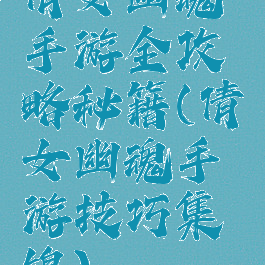 倩女幽魂
手游全攻
略秘籍(倩
女幽魂手
游技巧集
锦)